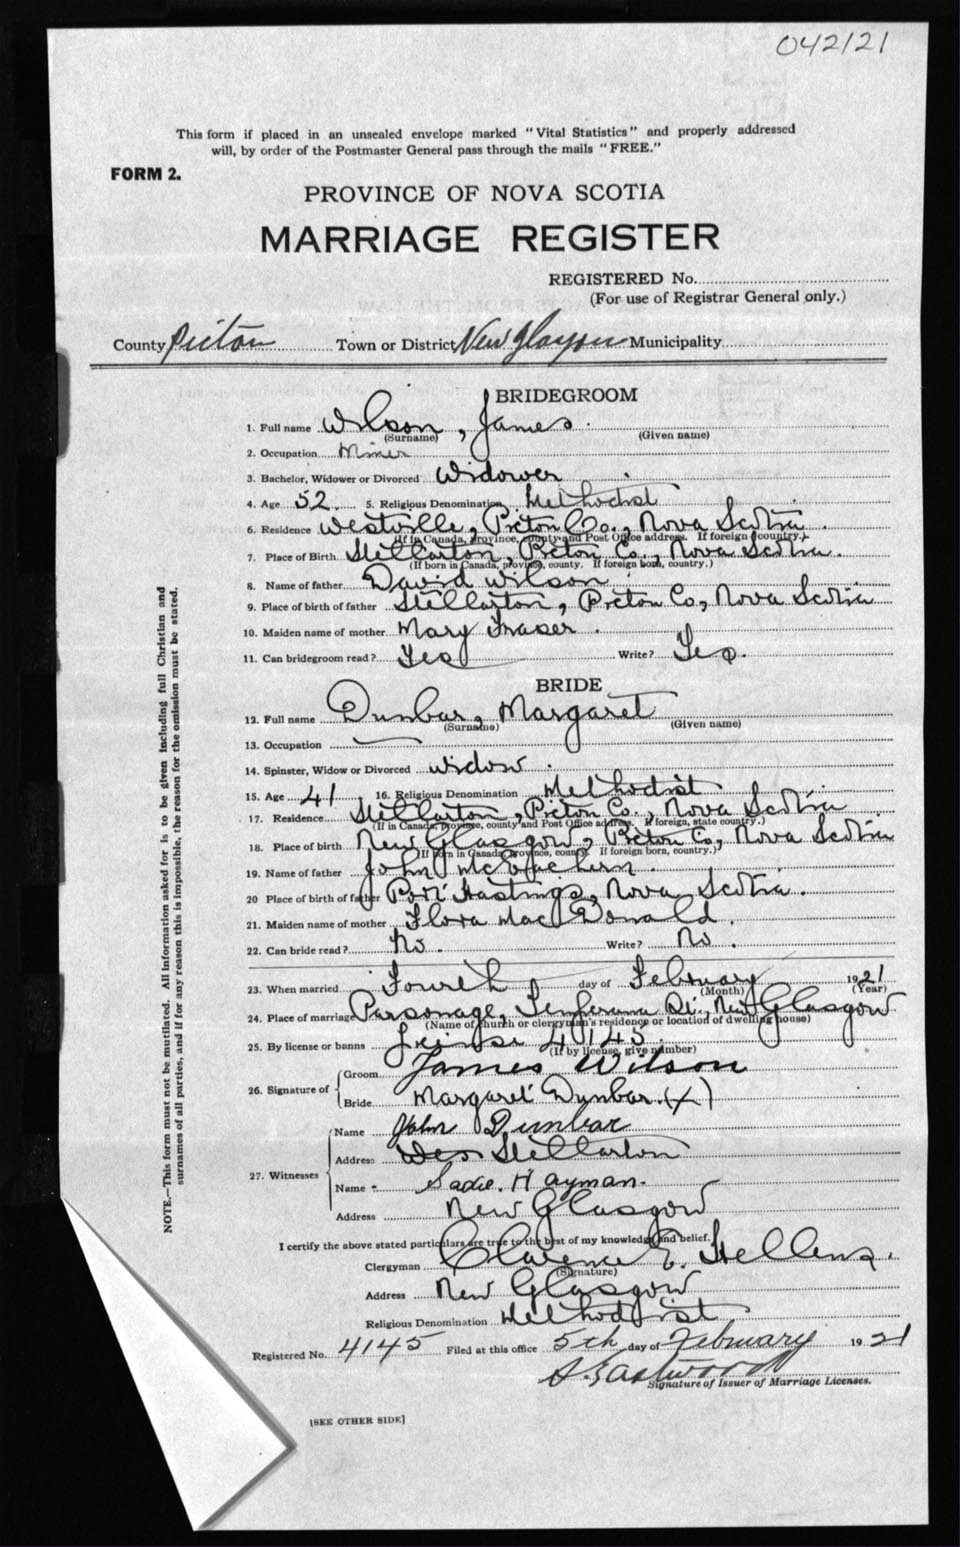 042121
This form if placed in an unsealed envelope marked "Vital Statistics" and properly addressed
will, by order of the Postmaster General pass through the mails "FREE."
FORM 2.
PROVINCE OF NOVA SCOTIA
MARRIAGE REGISTER
REGISTERED No.
(For use of Registrar General only.)
County Pictou Town or District New Glasgow Municipality
BRIDEGROOM
1. Full name Wilson, James.
(Surname) (Given name)
2. Occupation Miner
3. Bachelor, Widower or Divorced Widower
4. Age 52. 5. Religious Denomination Methodist
6. Residence Westville, Pictou Co., Nova Scotia.
(If in Canada, province, county and Post Office address. If foreign country.)
7. Place of Birth Stellarton, Pictou Co., Nova Scotia.
(If born in Canada, province, county. If foreign born, country.)
8. Name of father David Wilson
9. Place of birth of father Stellarton, Pictou Co, Nova Scotia
10. Maiden name of mother Mary Fraser.
11. Can bridegroom read? Yes Write? Yes.
BRIDE
12. Full name Dunbar, Margaret
(Surname) (Given name)
13. Occupation
14. Spinster, Widow or Divorced widow.
15. Age 41 16. Religious Denomination Methodist
17. Residence Stellarton, Pictou Co., Nova Scotia
(If in Canada, province, county and Post Office address. If foreign, state country.)
18. Place of birth New Glasgow, Pictou Co, Nova Scotia
(If born in Canada, province, county. If foreign born, country.)
19. Name of father John McEachern.
20 Place of birth of father Port Hastings, Nova Scotia.
21. Maiden name of mother Flora MacDonald.
22. Can bride read? No. Write? No.
23. When married Fourth day of February 1921
(Month) (Year)
24. Place of marriage Parsonage, Temperance St., New Glasgow
(Name of church or clergyman's residence or location of dwelling house)
25. By license or banns License 4145.
(If by license, give number)
26. Signature of Groom James Wilson
Bride Margaret Dunbar (X)
27. Witnesses Name John Dunbar
Address Stellarton
Name Sadie. Hayman.
Address New Glasgow
I certify the above stated particulars are true to the best of my knowledge and belief.
Clergyman Clarence E. Hellens.
(Signature)
Address New Glasgow
Religious Denomination Methodist
Registered No. 4145 Filed at this office 5th day of February 1921
Eastwood
Signature of Issuer of Marriage Licenses.
[SEE OTHER SIDE]
NOTE.—This form must not be mutilated. All information asked for is to be given including full Christian and
surnames of all parties, and if for any reason this is impossible, the reason for the omission must be stated.